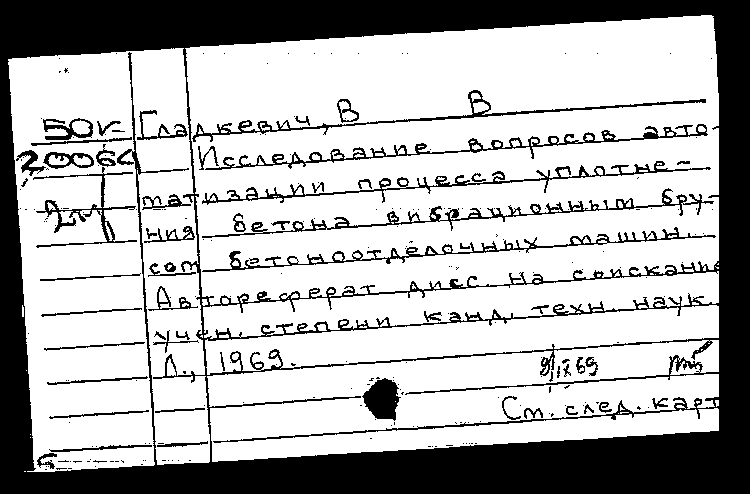 50г- Гладкевич, В В
20064 Исследование вопросов авто-
матизации процесса уплотне-
ния бетона вибрационным бру-
сом бетоноотделочных машин.
Автореферат дисс. на соискание
учен. степени канд. техн. наук.
Л., 1969.
9/IX 69
См. след. карт